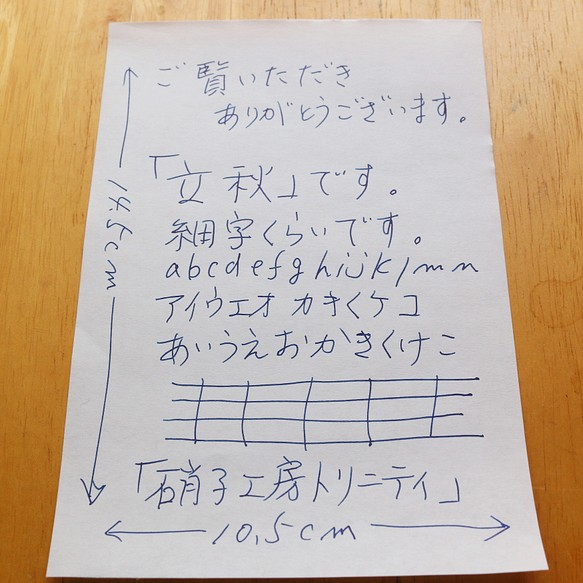 ご覧いただき
ありがとうございます。
「立秋」です。
細字くらいです。
abcdefghijklmn
アイウエオ カきくケコ
あいうえおかきくけこ
「硝子工房トリニティ」
10.5cm
14.5cm